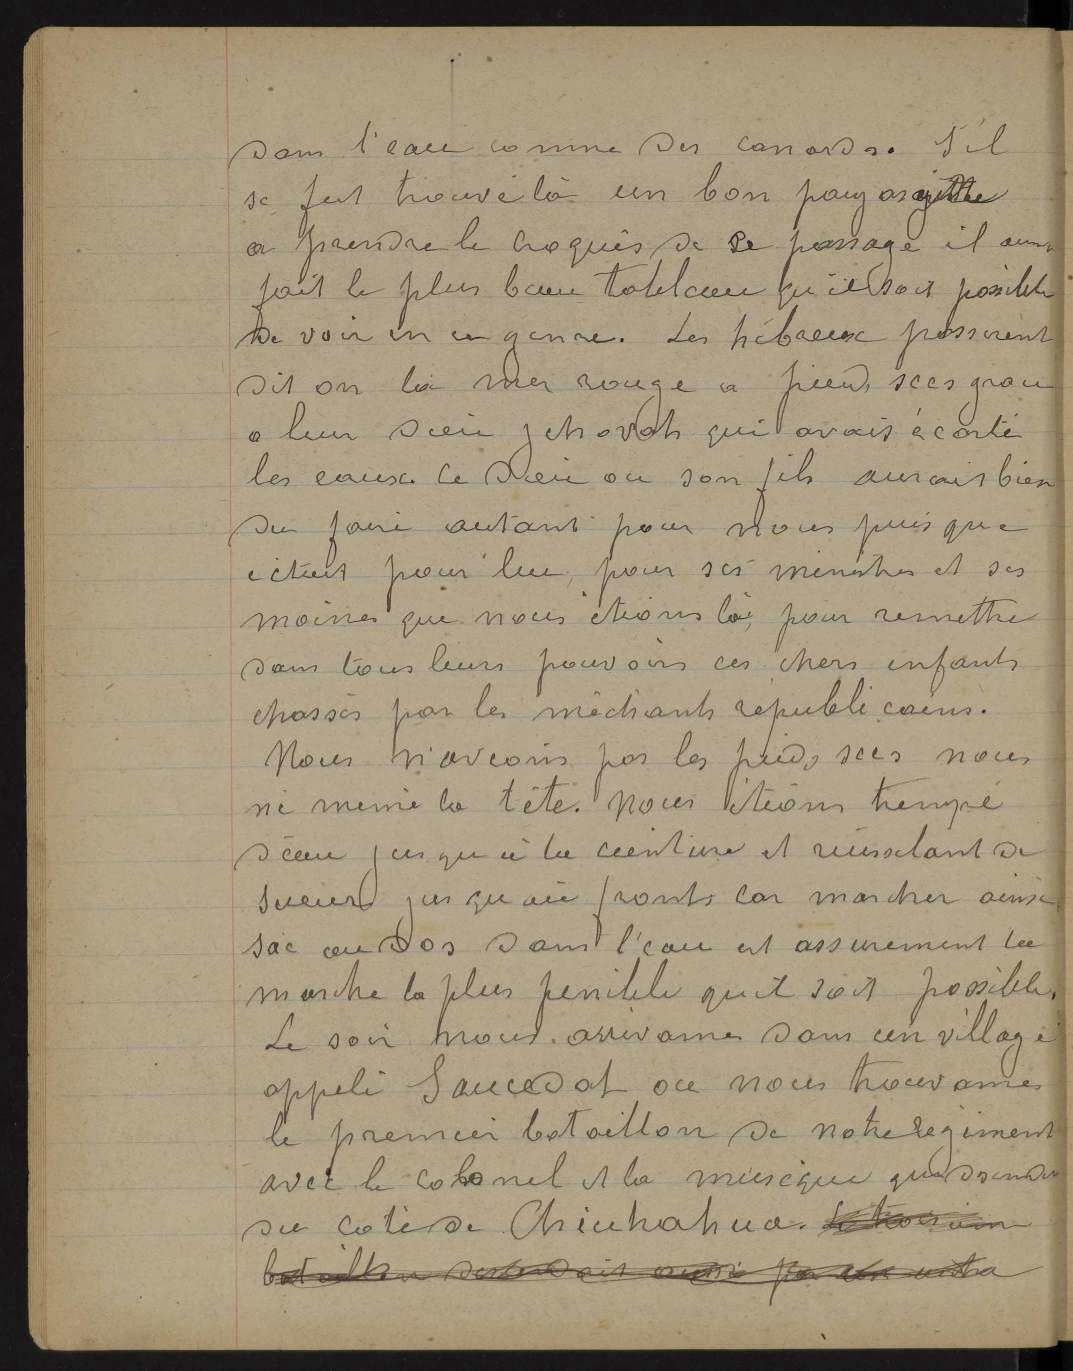 dans l'eau comme des canards. S'il
se fut trouvé là un bon paysagiste
a prendre le croquis de ce passage il aurai
fait le plus beau tableau qu'il soit possible
de voir en ce genre. Les hébreux passerent
dit on la mer rouge a pieds secs grace
a leur dieu jehovah qui avait écarté
les eaux. Ce dieu ou son fils aurait bien
du faire autant pour nous puis que
c'etait pour lui, pour ses ministres et ses
moines que nous étions là, pour remettre
dans tous leurs pouvoirs ces chers enfants
chassés par les méchants républicains.
Nous n'avions pas les pieds secs nous
ni meme la tête. Nous étions trempé
d'eau jusqu'à la ceinture et ruisselant de
sueurs jusqu'au fronts car marcher ainsi
sac au dos dans l'eau est assurement la
marche la plus penible qu'il soit possible.
Le soir nous arrivames dans un village
appelé Saucedat ou nous trouvames
le premier bataillon de notre regiment
avec le colonel et la musique qui
du coté de Chiuhahua. le troisieme
bataillon descendait aussi par